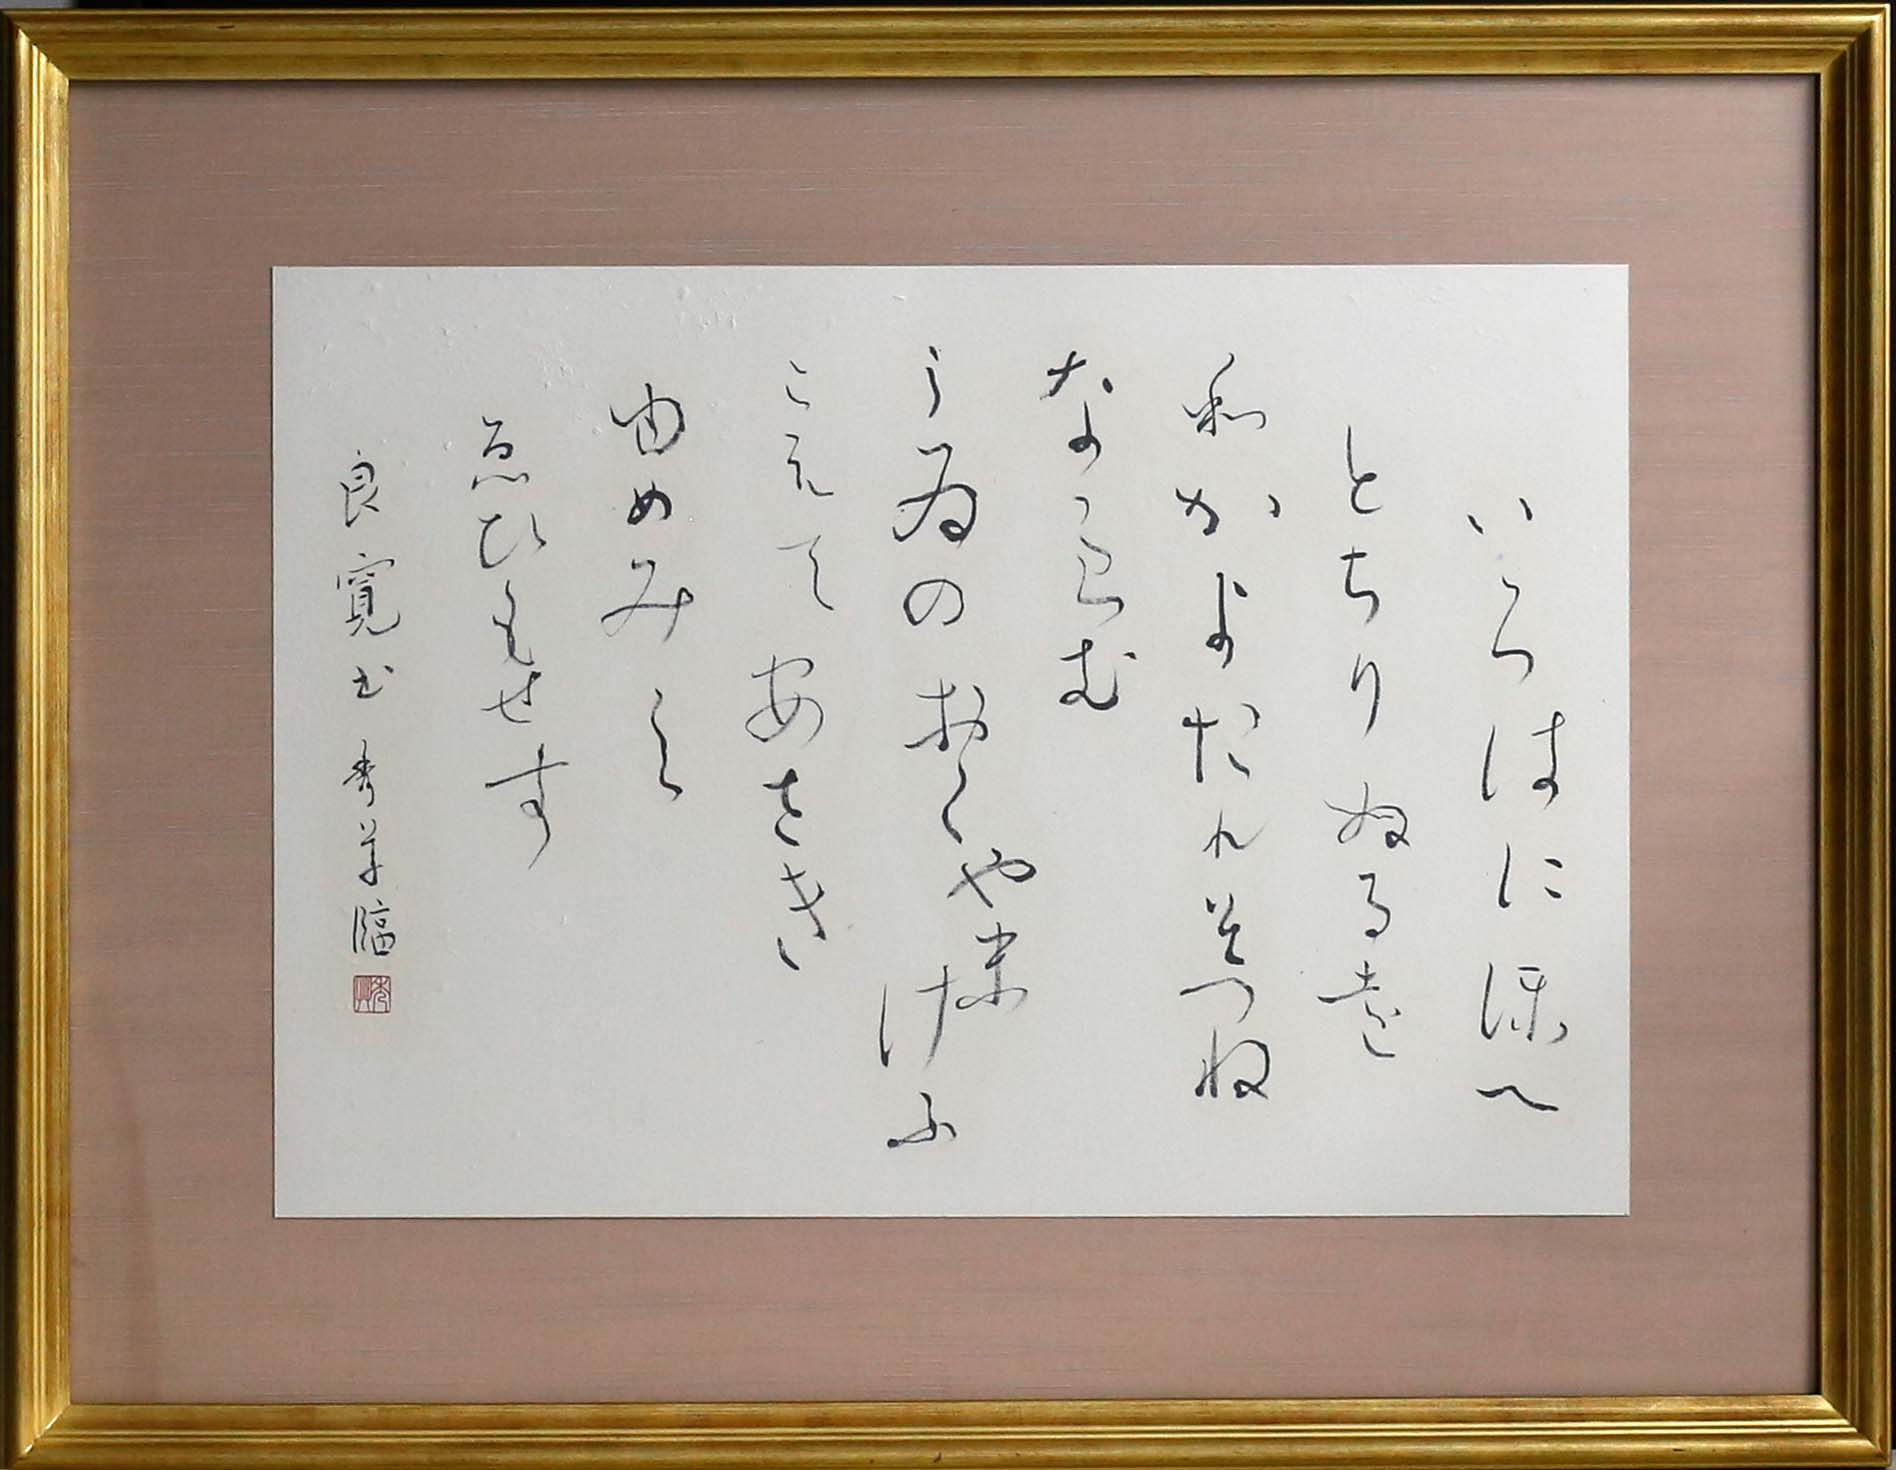 いろはにほへ
とちりぬるを
和かよたれそつね
ならむ
うゐのおくや末けふ
こえて安さき
由めみし
ゑひもせす
良寛書 秀華臨